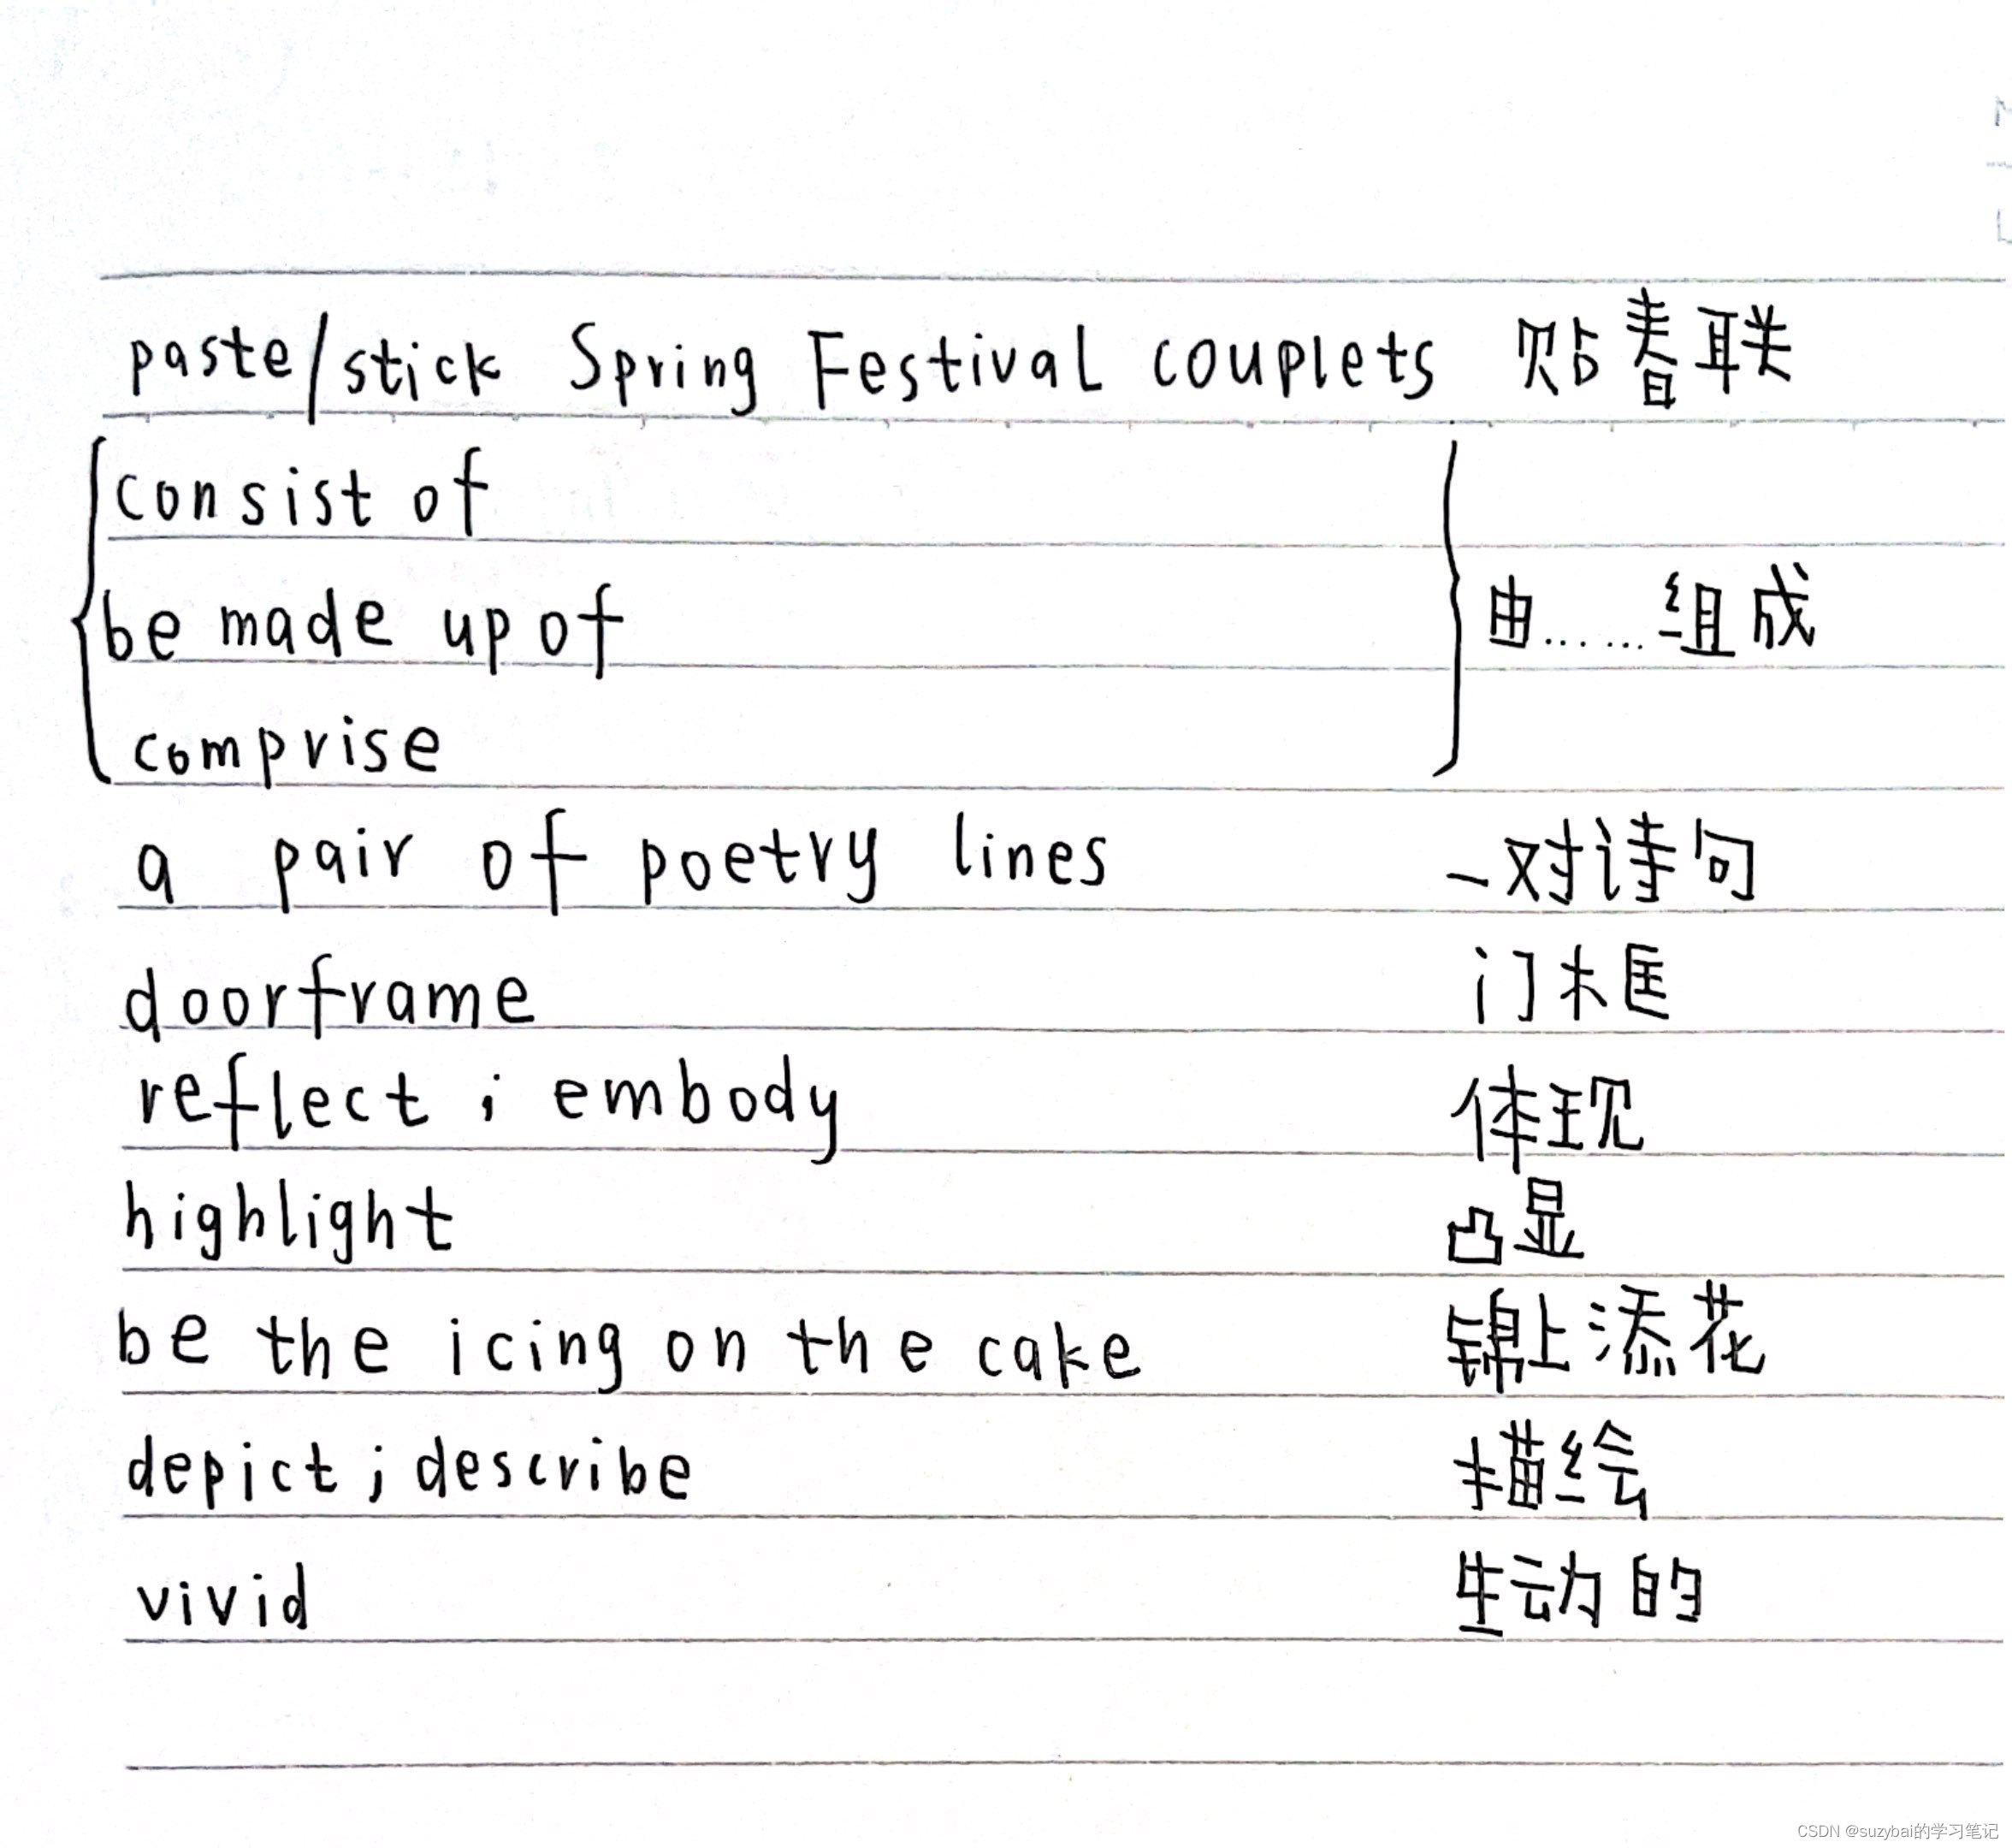 paste/stick Spring Festival couplets 贴春联
consist of
be made up of 由……组成
comprise
a pair of poetry lines 一对诗句
doorframe 门框
reflect; embody 体现
highlight 凸显
be the icing on the cake 锦上添花
depict; describe 描绘
vivid 生动的
CSDN @suzybai的学习笔记